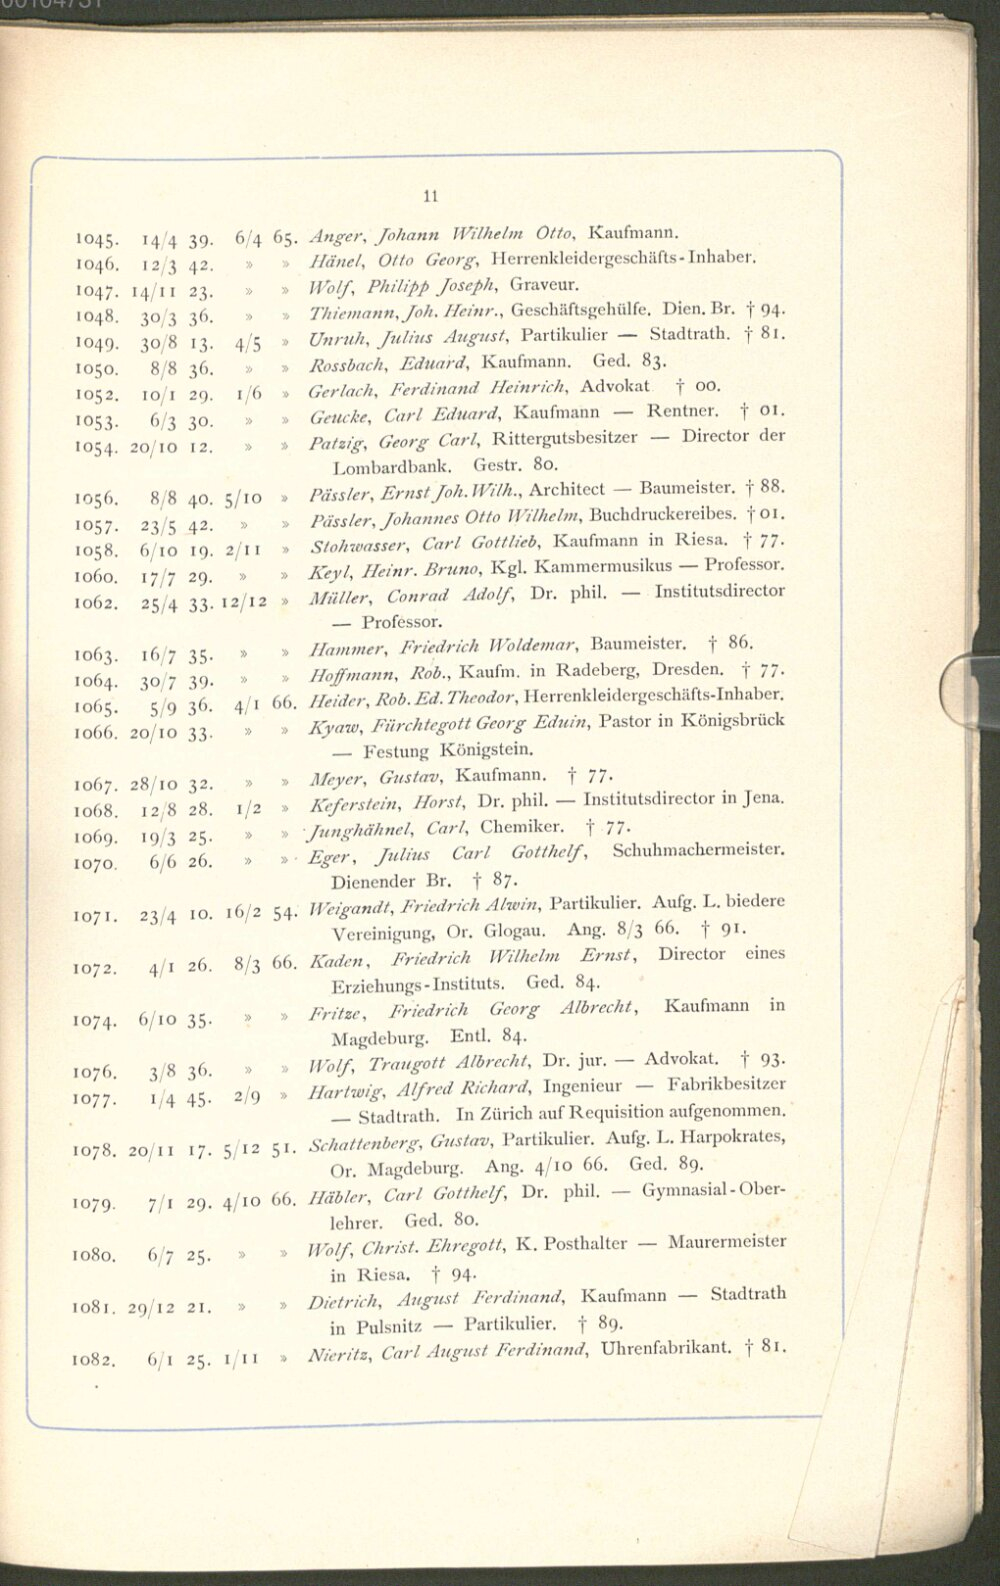 11
1045. 14/4 39. 6/4 65. Anger, Johann Wilhelm Otto, Kaufmann.
1046. 12/3 42. » » Hänel, Otto Georg, Herrenkleidergeschäfts-Inhaber.
1047. 14/11 23. » » Wolf, Philipp Joseph, Graveur.
1048. 30/3 36. » » Thiemann, Joh. Heinr., Geschäftsgehülfe. Dien. Br. † 94.
1049. 30/8 13. 4/5 » Unruh, Julius August, Partikulier — Stadtrath. † 81.
1050. 8/8 36. » » Rossbach, Eduard, Kaufmann. Ged. 83.
1052. 10/1 29. 1/6 » Gerlach, Ferdinand Heinrich, Advokat † 00.
1053. 6/3 30. » » Geucke, Carl Eduard, Kaufmann — Rentner. † 01.
1054. 20/10 12. » » Patzig, Georg Carl, Rittergutsbesitzer — Director der
Lombardbank. Gestr. 80.
1056. 8/8 40. 5/10 » Pässler, Ernst Joh. Wilh., Architect — Baumeister. † 88.
1057. 23/5 42. » » Pässler, Johannes Otto Wilhelm, Buchdruckereibes. † 01.
1058. 6/10 19. 2/11 » Stohwasser, Carl Gottlieb, Kaufmann in Riesa. † 77.
1060. 17/7 29. » » Keyl, Heinr. Bruno, Kgl. Kammermusikus — Professor.
1062. 25/4 33. 12/12 » Müller, Conrad Adolf, Dr. phil. — Institutsdirector
— Professor.
1063. 16/7 35. » » Hammer, Friedrich Woldemar, Baumeister. † 86.
1064. 30/7 39. » » Hoffmann, Rob., Kaufm. in Radeberg, Dresden. † 77.
1065. 5/9 36. 4/1 66. Heider, Rob. Ed. Theodor, Herrenkleidergeschäfts-Inhaber.
1066. 20/10 33. » » Kyaw, Fürchtegott Georg Eduin, Pastor in Königsbrück
— Festung Königstein.
1067. 28/10 32. » » Meyer, Gustav, Kaufmann. † 77.
1068. 12/8 28. 1/2 » Keferstein, Horst, Dr. phil. — Institutsdirector in Jena.
1069. 19/3 25. » » Junghähnel, Carl, Chemiker. † 77.
1070. 6/6 26. » » Eger, Julius Carl Gotthelf, Schuhmachermeister.
Dienender Br. † 87.
1071. 23/4 10. 16/2 54. Weigandt, Friedrich Alwin, Partikulier. Aufg. L. biedere
Vereinigung, Or. Glogau. Ang. 8/3 66. † 91.
1072. 4/1 26. 8/3 66. Kaden, Friedrich Wilhelm Ernst, Director eines
Erziehungs-Instituts. Ged. 84.
1074. 6/10 35. » » Fritze, Friedrich Georg Albrecht, Kaufmann in
Magdeburg. Entl. 84.
1076. 3/8 36. » » Wolf, Traugott Albrecht, Dr. jur. — Advokat. † 93.
1077. 1/4 45. 2/9 » Hartwig, Alfred Richard, Ingenieur — Fabrikbesitzer
— Stadtrath. In Zürich auf Requisition aufgenommen.
1078. 20/11 17. 5/12 51. Schattenberg, Gustav, Partikulier. Aufg. L. Harpokrates,
Or. Magdeburg. Ang. 4/10 66. Ged. 89.
1079. 7/1 29. 4/10 66. Häbler, Carl Gotthelf, Dr. phil. — Gymnasial-Ober-
lehrer. Ged. 80.
1080. 6/7 25. » » Wolf, Christ. Ehregott, K. Posthalter — Maurermeister
in Riesa. † 94.
1081. 29/12 21. » » Dietrich, August Ferdinand, Kaufmann — Stadtrath
in Pulsnitz — Partikulier. † 89.
1082. 6/1 25. 1/11 » Nieritz, Carl August Ferdinand, Uhrenfabrikant. † 81.